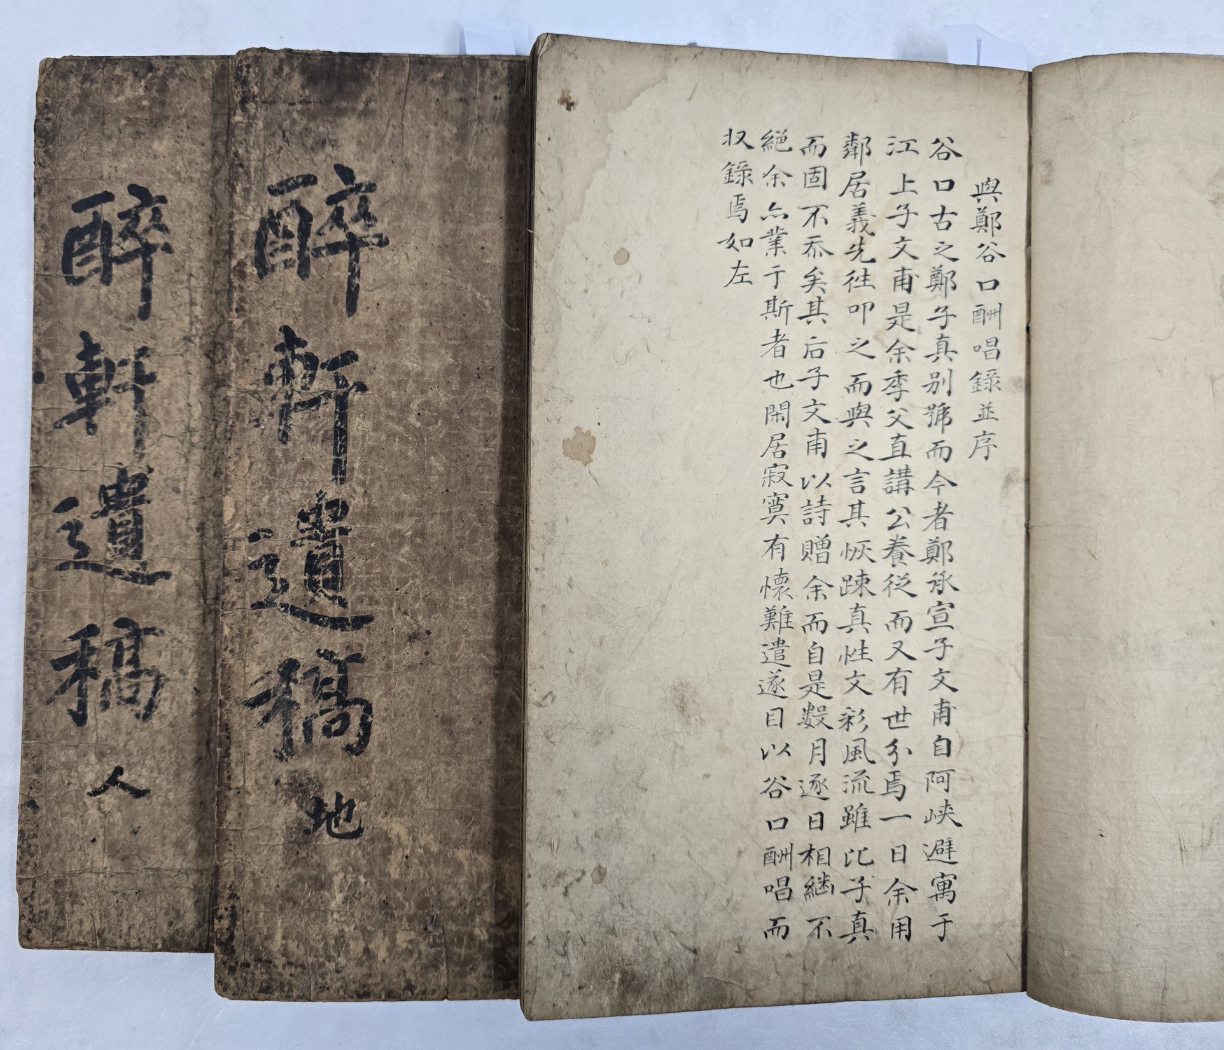 與鄭谷口酬唱錄並序
谷口古之鄭子真別號而今者鄭承宣子文甫自阿峽避寓于
江上子文甫是余季父直講公養從而又有世分焉一日余用
鄰居義先徃叩之而與之言其恢踈真性文彩風流雖比子真
而固不忝矣其后子文甫以詩贈余而自是數月逐日相繼不
絕余亦業于斯者也閑居寂寞有懷難遣遂目以谷口酬唱而
収錄焉如左
醉軒遺稿 地
醉軒遺稿 人